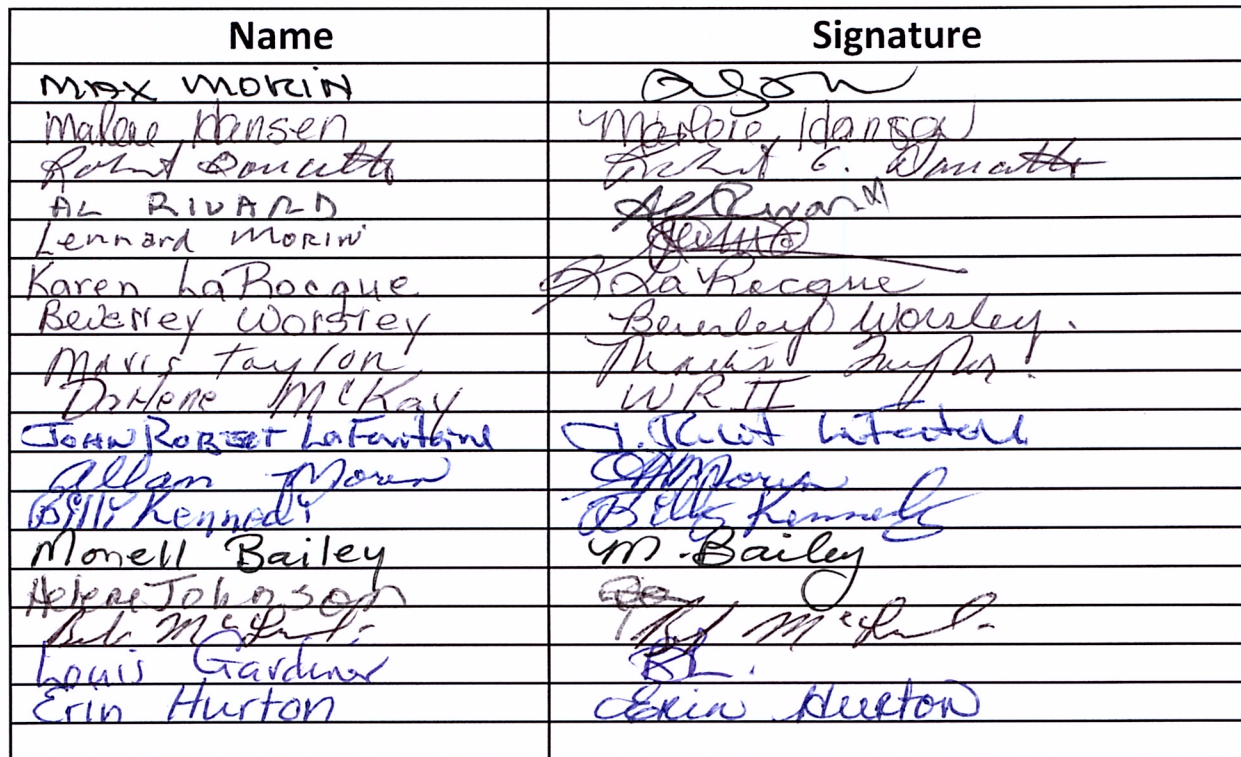 Name Signature
MAX MORIN
Malene Hansen Marlene Hansen
Robert Doucette Robert G. Doucette
AL RIVARD Al Rivard
Lennard MORIN
Karen LaRocque K LaRocque
Beverley Worsley Beverley Worsley.
Mavis Taylor Mavis Taylor
Darlene McKay WR II
JOHN ROBERT LaFontaine J. Robert LaFontaine
Allan Morin A Morin
Billy Kennedy Billy Kennedy
Monell Bailey M. Bailey
Helene Johnson
Bob Bob
Louis Gardiner
Erin Hurton Erin Hurton